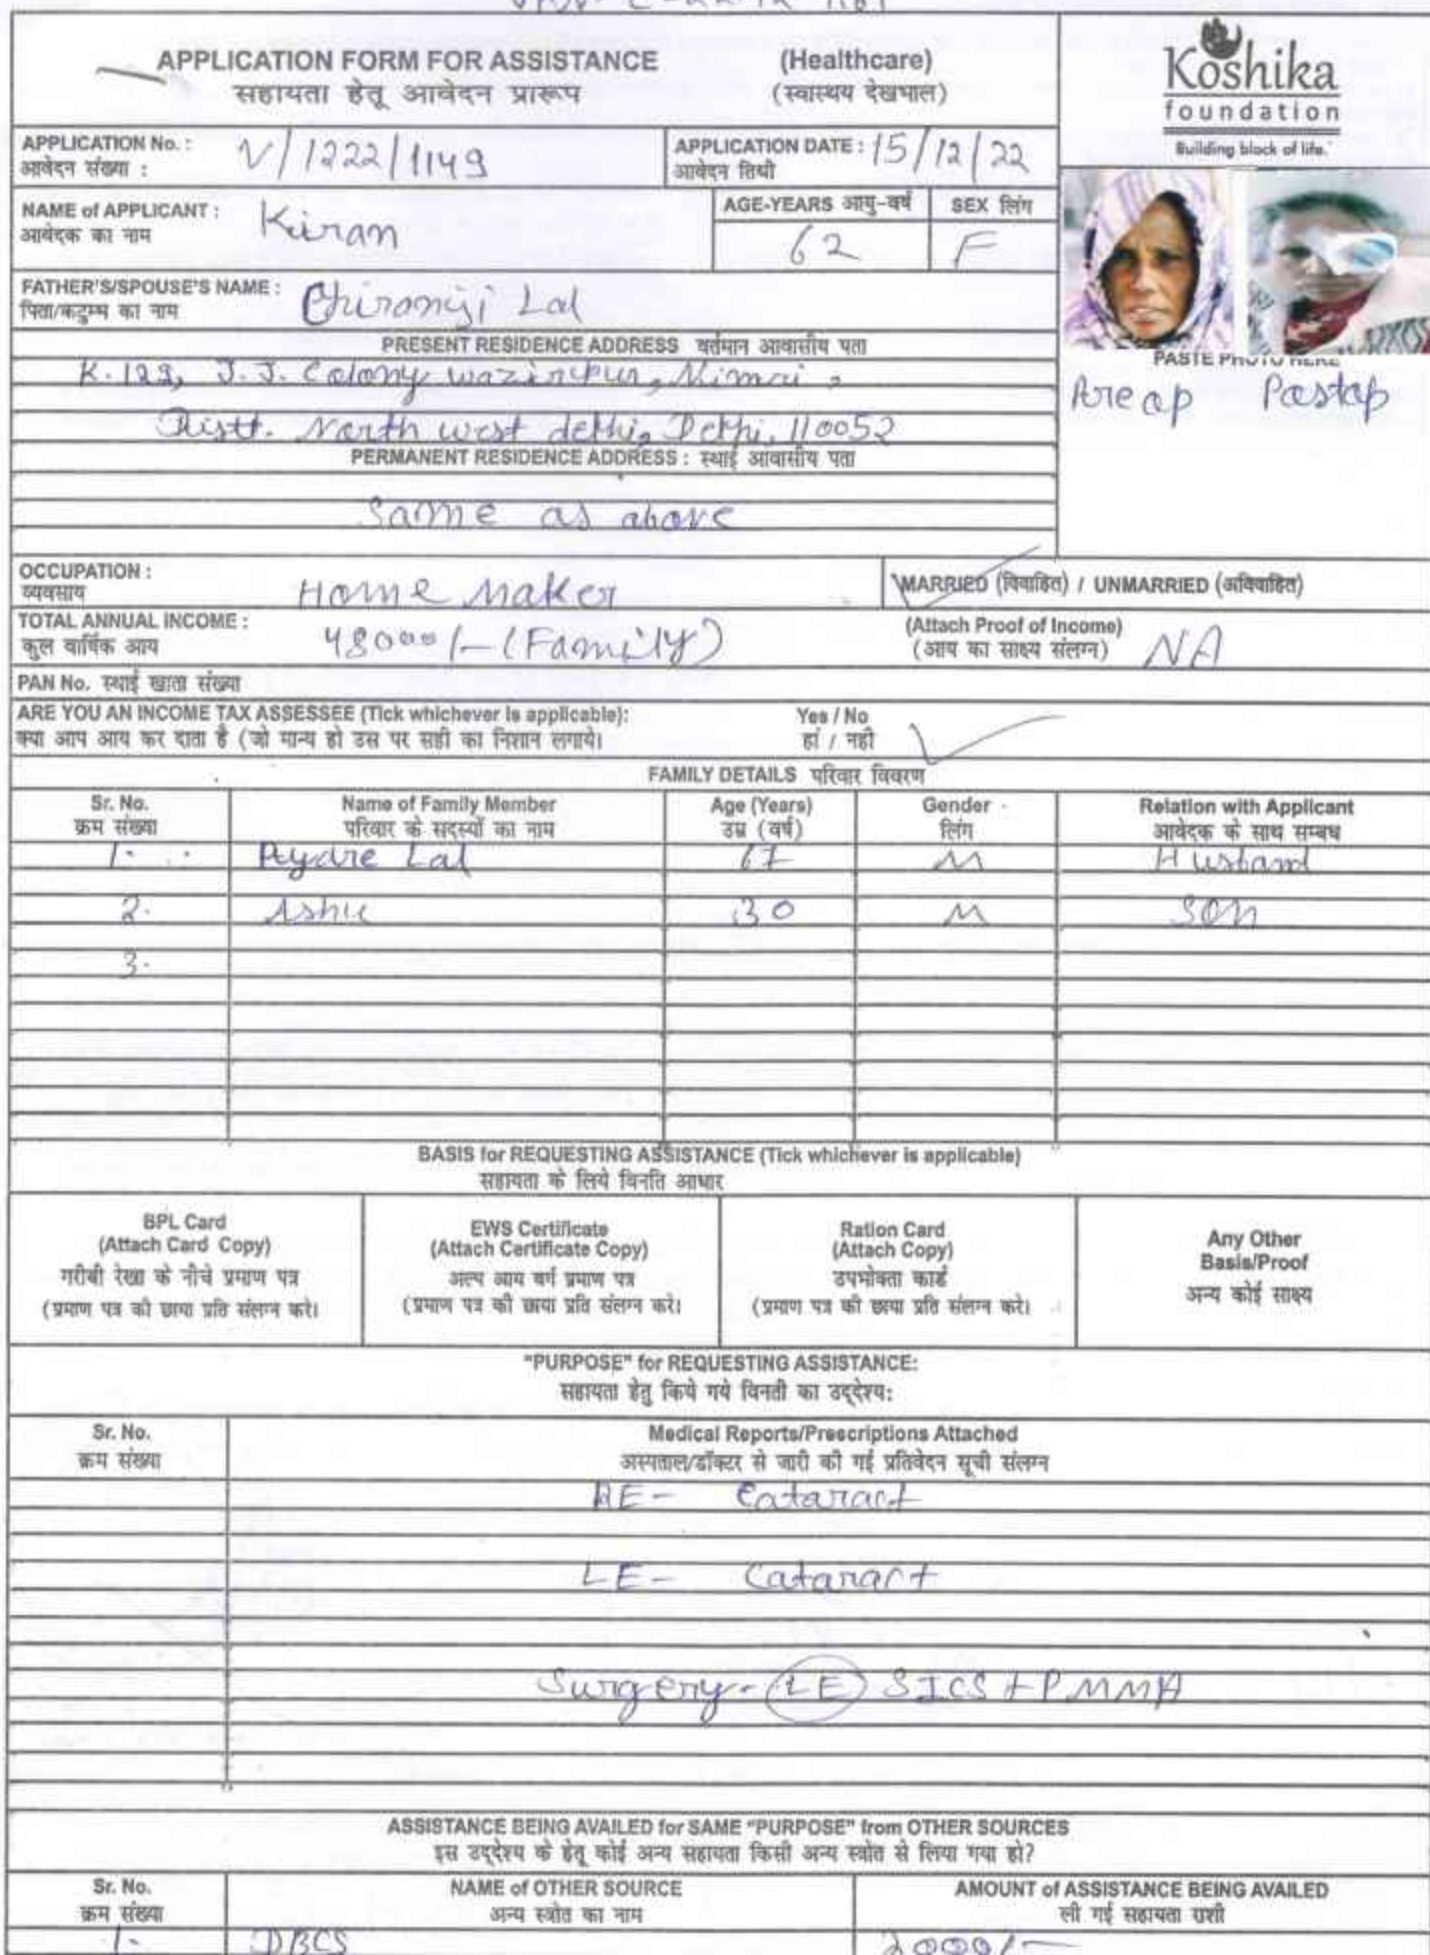 APPLICATION FORM FOR ASSISTANCE (Healthcare)
सहायता हेतू आवेदन प्रारूप (स्वास्थय देखभाल)
Koshika
foundation
Building block of life.
APPLICATION No. : V/1222/1149 APPLICATION DATE : 15/12/22
आवेदन संख्या : आवेदन तिथी
NAME of APPLICANT : Kiran AGE-YEARS आयु-वर्ष SEX लिंग
आवेदक का नाम 62 F
FATHER'S/SPOUSE'S NAME : Chiranji Lal
पिता/कटुम्म का नाम
PASTE PHOTO HERE
Pre op Postop
PRESENT RESIDENCE ADDRESS वर्तमान आवासीय पता
K. J.J. Colony wazirpur, Nimri,
Distt. North west delhi, Delhi, 110052
PERMANENT RESIDENCE ADDRESS : स्थाई आवासीय पता
Same as above
OCCUPATION : Home Maker MARRIED (विवाहित) / UNMARRIED (अविवाहित)
व्यवसाय
TOTAL ANNUAL INCOME : 48000/- (Family) (Attach Proof of Income) NA
कुल वार्षिक आय (आय का साक्ष्य संलग्न)
PAN No. स्थाई खाता संख्या
ARE YOU AN INCOME TAX ASSESSEE (Tick whichever is applicable): Yes / No
क्या आप आय कर दाता है (जो मान्य हो उस पर सही का निशान लगाये। हां / नही
FAMILY DETAILS परिवार विवरण
Sr. No. Name of Family Member Age (Years) Gender Relation with Applicant
क्रम संख्या परिवार के सदस्यों का नाम उम्र (वर्ष) लिंग आवेदक के साथ सम्बध
1. Pyare Lal 67 M Husband
2. Ashu 30 M Son
3.
BASIS for REQUESTING ASSISTANCE (Tick whichever is applicable)
सहायता के लिये विनति आधार
BPL Card
(Attach Card Copy)
गरीबी रेखा के नीचे प्रमाण पत्र
(प्रमाण पत्र की छाया प्रति संलग्न करे।
EWS Certificate
(Attach Certificate Copy)
अल्प आय वर्ग प्रमाण पत्र
(प्रमाण पत्र की छाया प्रति संलग्न करे।
Ration Card
(Attach Copy)
उपभोक्ता कार्ड
(प्रमाण पत्र की छाया प्रति संलग्न करे।
Any Other
Basis/Proof
अन्य कोई साक्ष्य
"PURPOSE" for REQUESTING ASSISTANCE:
सहायता हेतु किये गये विनती का उद्देश्य:
Sr. No. Medical Reports/Prescriptions Attached
क्रम संख्या अस्पताल/डॉक्टर से जारी की गई प्रतिवेदन सूची संलग्न
RE - Cataract
LE - Cataract
Surgery - LE SICS + PMMA
ASSISTANCE BEING AVAILED for SAME "PURPOSE" from OTHER SOURCES
इस उद्देश्य के हेतू कोई अन्य सहायता किसी अन्य स्त्रोत से लिया गया हो?
Sr. No. NAME of OTHER SOURCE AMOUNT of ASSISTANCE BEING AVAILED
क्रम संख्या अन्य स्त्रोत का नाम ली गई सहायता राशी
1- DBCS 2000/-